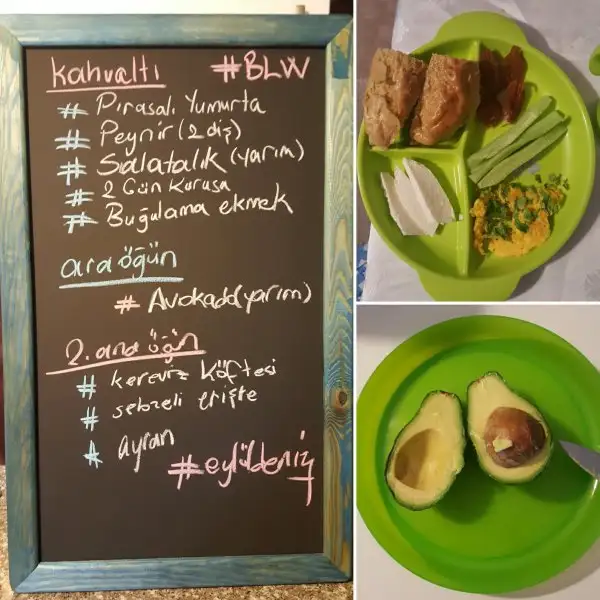 kahvaltı #BLW
# Pırasalı Yumurta
# Peynir (2 diş)
# Salatalık (yarım)
# 2 Gün Kurusu
# Buğulama ekmek
ara öğün
# Avokado (yarım)
2. ara öğün
# kereviz köftesi
# sebzeli erişte
# ayran
#eylüldeniz